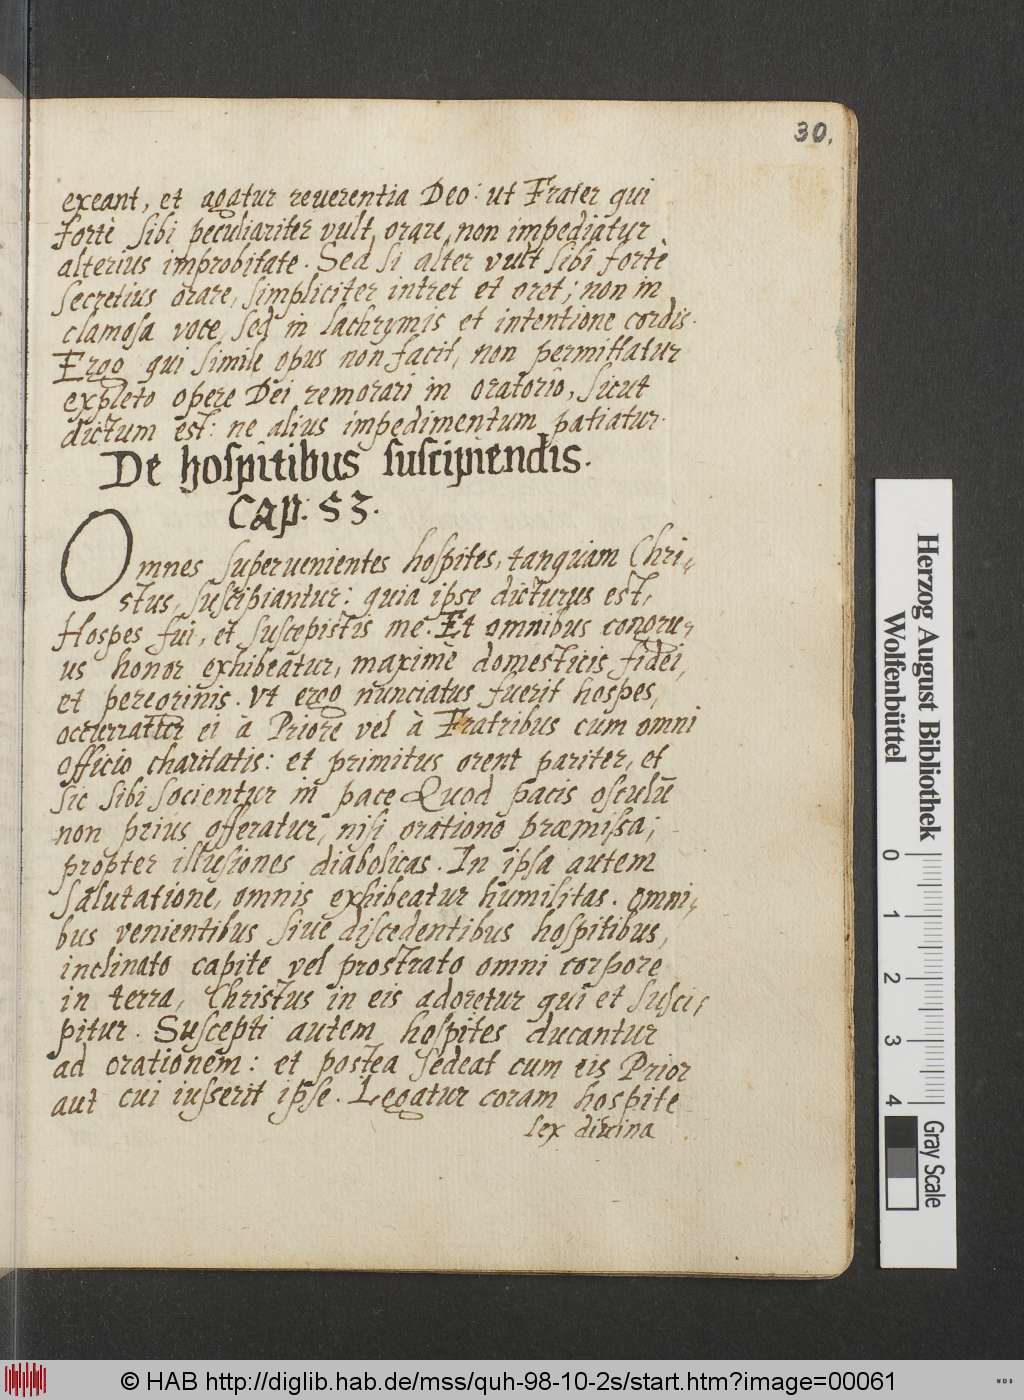 30.
exeant, et agatur reuerentia Deo: ut Frater qui
fortè sibi peculiariter vult orare, non impediatur
alterius improbitate. Sed si alter vult sibi fortè
secretius orare, simpliciter intret et oret; non in
clamosa voce, sed in lachrymis et intentione cordis.
Ergo qui simile opus non facit, non permittatur
expleto opere Dei remorari in oratorio, sicut
dictum est: ne alius impedimentum patiatur.
De hospitibus suscipiendis.
Cap. 53.
Omnes superuenientes hospites, tanquam Chri-
stus, suscipiantur: quia ipse dicturus est,
Hospes fui, et suscepistis me. Et omnibus congru-
us honor exhibeatur, maximè domesticis fidei,
et peregrinis. Vt ergo nunciatus fuerit hospes,
occurratur ei à Priore vel à Fratribus cum omni
officio charitatis: et primitus orent pariter, et
sic sibi socientur in pace Quod pacis osculū
non prius offeratur, nisi oratione præmissa;
propter illusiones diabolicas. In ipsa autem
salutatione, omnis exhibeatur humilitas. omni-
bus venientibus siue discedentibus hospitibus,
inclinato capite vel prostrato omni corpore
in terra, Christus in eis adoretur qui et susci-
pitur. Suscepti autem hospites ducantur
ad orationem: et postea sedeat cum eis Prior
aut cui iusserit ipse. Legatur coram hospite
lex diuina
Herzog August Bibliothek
Wolfenbüttel
0 1 2 3 4
Gray Scale
© HAB http://diglib.hab.de/mss/quh-98-10-2s/start.htm?image=00061